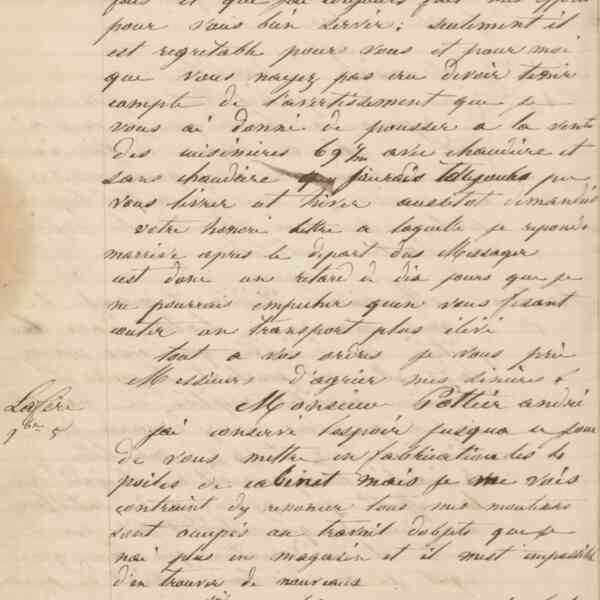 fois et que j'ai toujours fait mes efforts
pour vous bien servir; seulement il
est regretable pour vous et pour moi
que vous nayez pas cru devoir tenir
compte de l'avertissement que je
vous ai donné de pousser a la vente
des cuisinières 69 c/m avec chaudière et
sans chaudière que jaurais toujours pu
vous livrer cet hiver aussitot demandés
votre honoré lettre a laquelle je reponds
marrive apres le depart du Messager
cest donc un retard de dix jours que je
ne pourrais empecher quen vous fesant
couter un transport plus élévé
tout a vos ordres je vous prie
Messieurs d'agréer mes sinceres
Laferé
Monsieur Pottier andré
9bre 5
jai conservé lespoir jusqua ce jour
de vous mettre en fabrication les
poëles de cabinet mais je me vois
contraint dy renoncer tous mes mouleurs
sont occupés au travail dobjets que je
nai plus en magasin et il mest impossible
d'en trouver de nouveaux